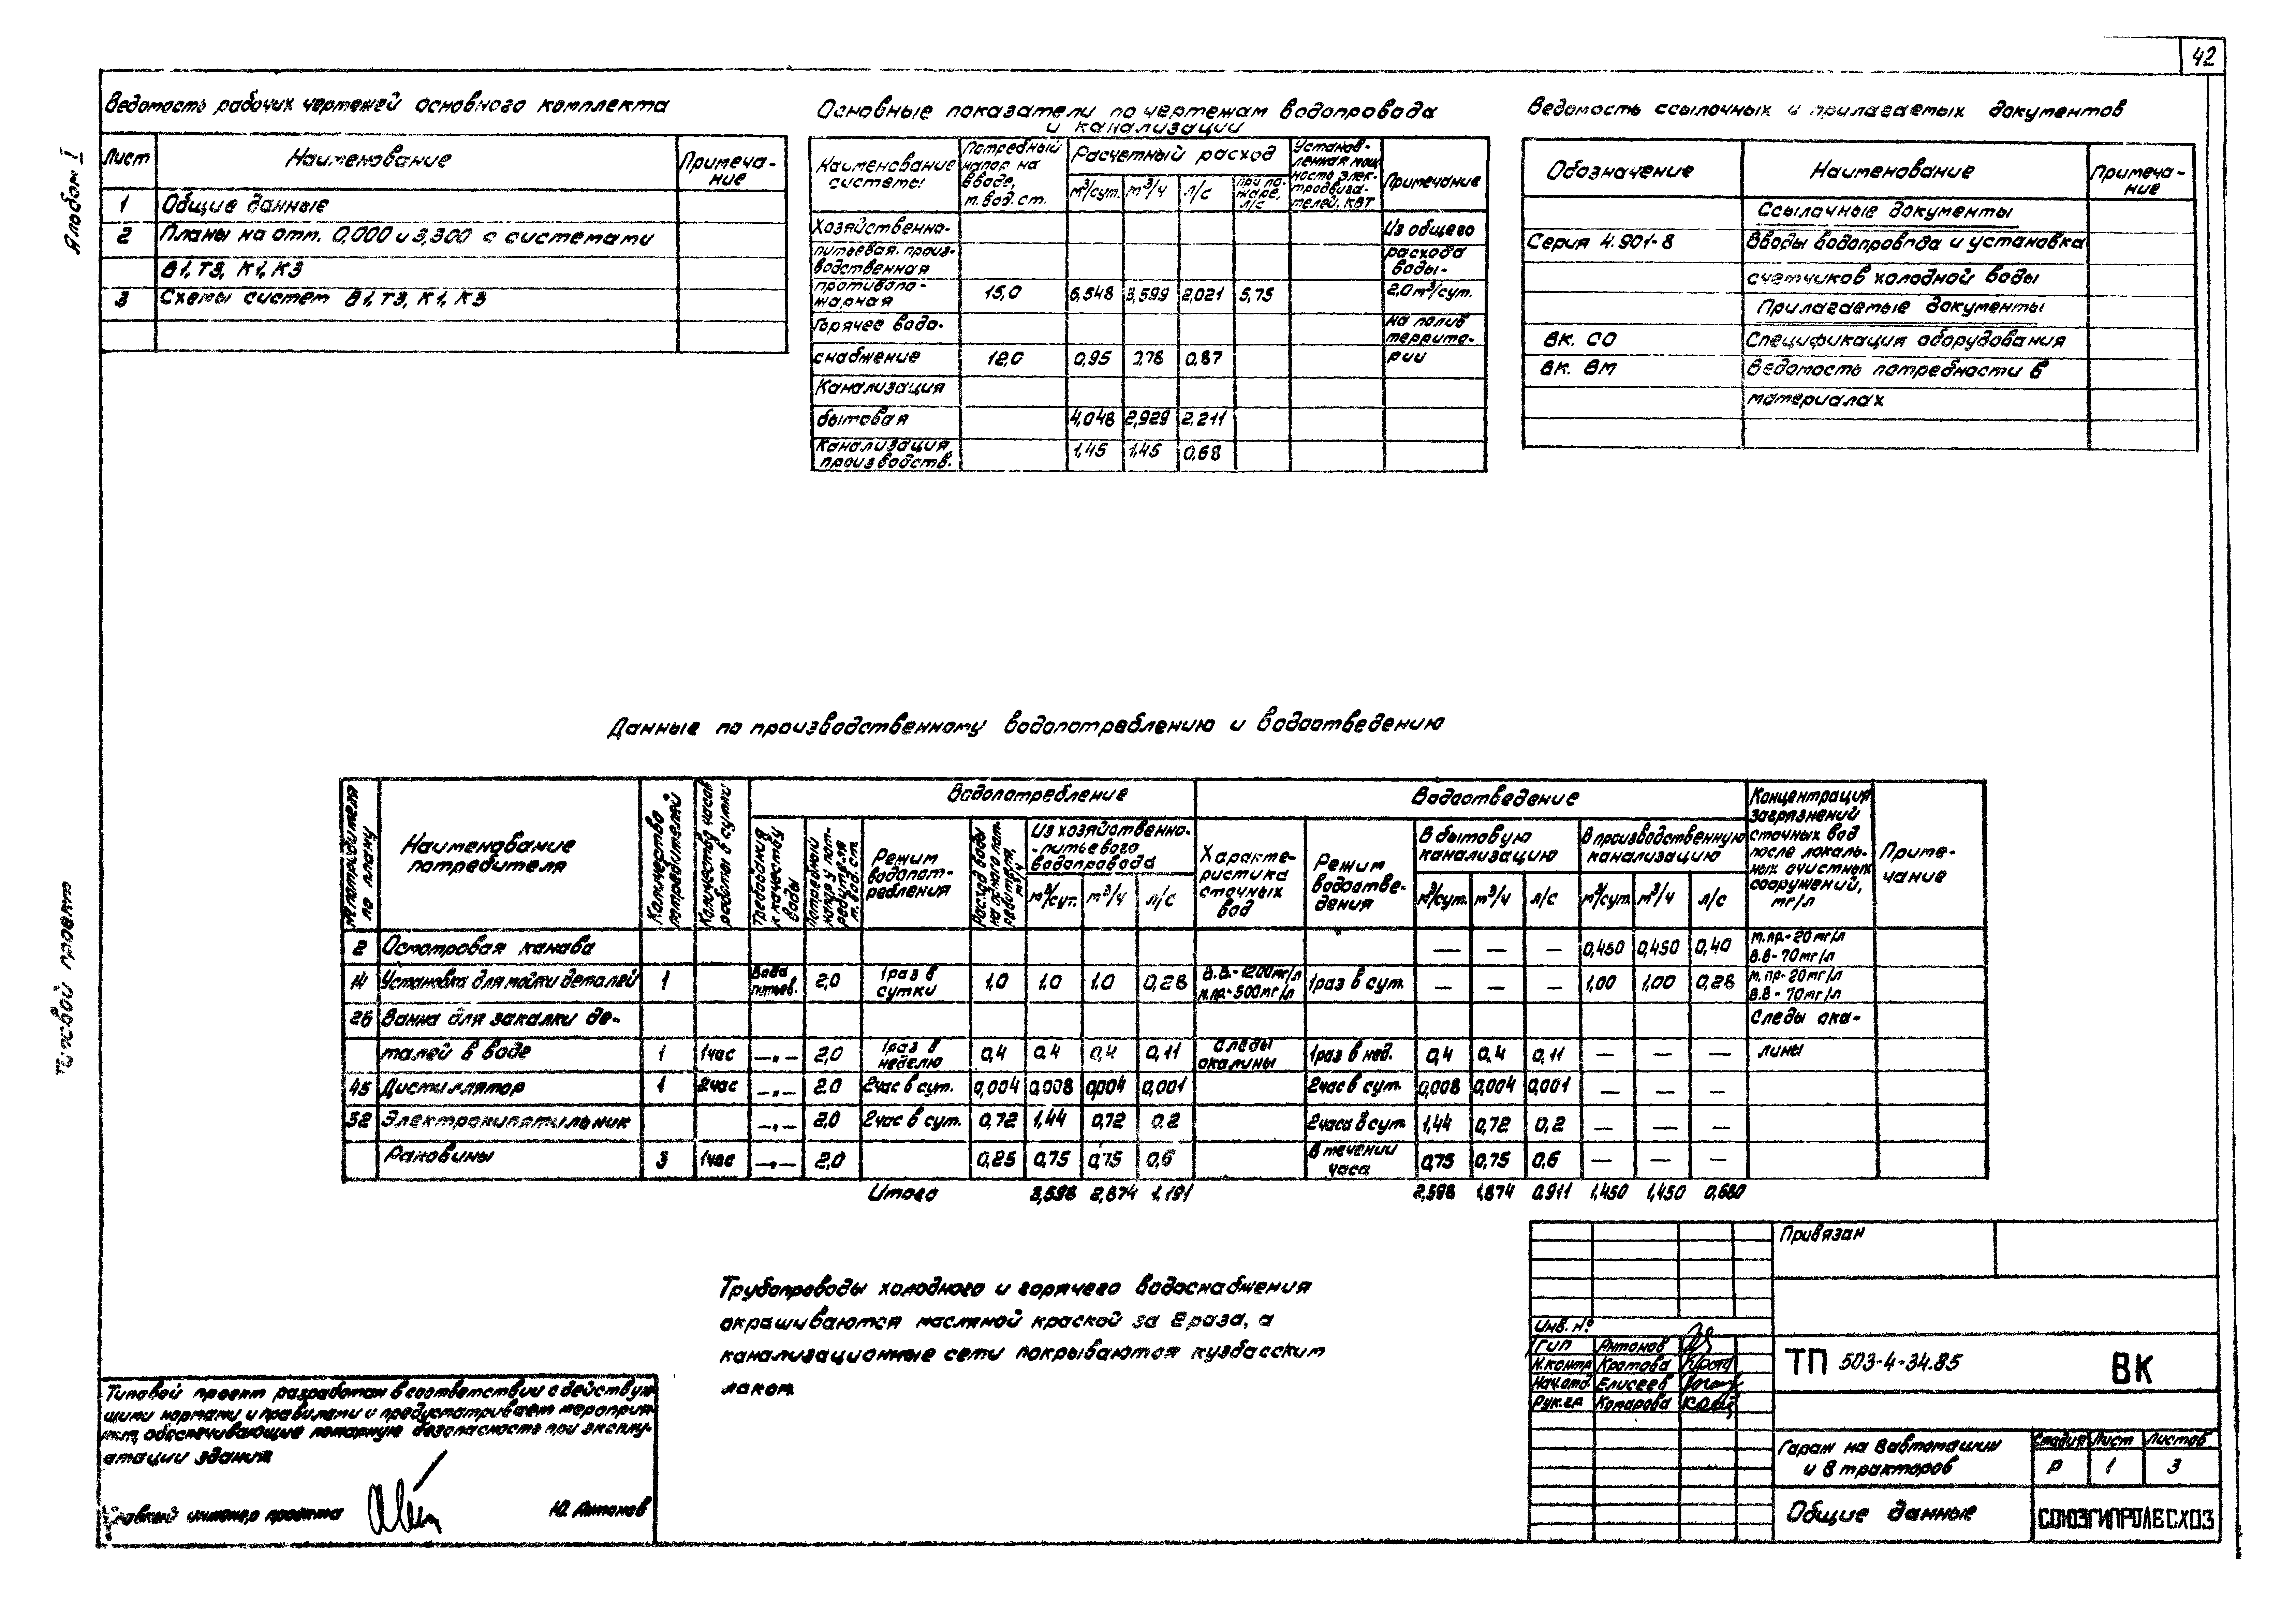 42
Альбом I
Типовой проект
Ведомость рабочих чертежей основного комплекта
Лист Наименование Примеча-
ние
1 Общие данные
2 Планы на отм. 0,000 и 3,300 с системами
В1, Т3, К1, К3
3 Схемы систем В1, Т3, К1, К3
Основные показатели по чертежам водопровода
и канализации
Наименование
системы
Потребный
напор на
вводе,
м. вод. ст.
Расчетный расход
м³/сут. м³/ч л/с
при по-
жаре,
л/с
Установ-
ленная мощ
ность элек-
тродвига-
телей, кВт
Примечание
Хозяйственно-
питьевая, произ-
водственная
противопо-
жарная 15,0 6,548 3,599 2,021 5,75
Горячее водо-
снабжение 12,0 0,95 0,78 0,87
Канализация
бытовая 4,048 2,929 2,211
Канализация
производств. 1,45 1,45 0,68
Из общего
расхода
воды-
2,0 м³/сут.
на полив
террито-
рии
Ведомость ссылочных и прилагаемых документов
Обозначение Наименование Примеча-
ние
Ссылочные документы
Серия 4.901-8 Вводы водопровода и установка
счетчиков холодной воды
Прилагаемые документы
ВК. СО Спецификация оборудования
ВК. ВМ Ведомость потребности в
материалах
Данные по производственному водопотреблению и водоотведению
№ потребителя
по плану
Наименование
потребителя
Количество
потребителей
Количество часов
работы в сутки
Водопотребление
Требования
к качеству
воды
Потребный
напор у пот-
ребителя
м. вод. ст.
Режим
водопот-
ребления
Расход воды
на одного пот-
ребителя,
м³/ч
Из хозяйственно-
-питьевого
водопровода
м³/сут. м³/ч л/с
Водоотведение
Характе-
ристика
сточных
вод
Режим
водоотве-
дения
В бытовую
канализацию
м³/сут. м³/ч л/с
В производственную
канализацию
м³/сут. м³/ч л/с
Концентрация
загрязнений
сточных вод
после локаль-
ных очистных
сооружений,
мг/л
Приме-
чание
2 Осмотровая канава — — — 0,450 0,450 0,40 м.пр.-20 мг/л
В.В-70 мг/л
14 Установка для мойки деталей 1 Вода
питьев. 2,0 1 раз в
сутки 1,0 1,0 1,0 0,28 В.В.-1200 мг/л
м.пр.-500 мг/л 1 раз в сут. — — — 1,00 1,00 0,28 м.пр-20 мг/л
В.В-70 мг/л
26 Ванна для закалки де- Следы ока-
талей в воде 1 1 час —„— 2,0 1 раз в
неделю 0,4 0,4 0,4 0,11 Следы
окалины 1 раз в нед. 0,4 0,4 0,11 — — — лины
45 Дистиллятор 1 2 час —„— 2,0 2 час в сут. 0,004 0,008 0,004 0,001 2 час в сут. 0,008 0,004 0,001 — — —
52 Электрокипятильник —„— 2,0 2 час в сут. 0,72 1,44 0,72 0,2 2 часа в сут 1,44 0,72 0,2 — — —
Раковины 3 1 час —„— 2,0 0,25 0,75 0,75 0,6 В течении
часа 0,75 0,75 0,6 — — —
Итого 3,598 2,874 1,191 2,598 1,874 0,911 1,450 1,450 0,680
Трубопроводы холодного и горячего водоснабжения
окрашиваются масляной краской за 2 раза, а
канализационные сети покрываются кузбасским
лаком
Типовой проект разработан в соответствии с действую-
щими нормами и правилами и предусматривает мероприя-
тия, обеспечивающие пожарную безопасность при эксплу-
атации здания
Главный инженер проекта Ю. Антонов
Привязан
Инв. №
ГИП Антонов
Н.контр Кротова
Нач.отд. Елисеев
Рук.гр Комарова
ТП 503-4-34.85 ВК
Гараж на 8 автомашин
и 8 тракторов
Стадия Лист Листов
Р 1 3
Общие данные
СОЮЗГИПРОЛЕСХОЗ